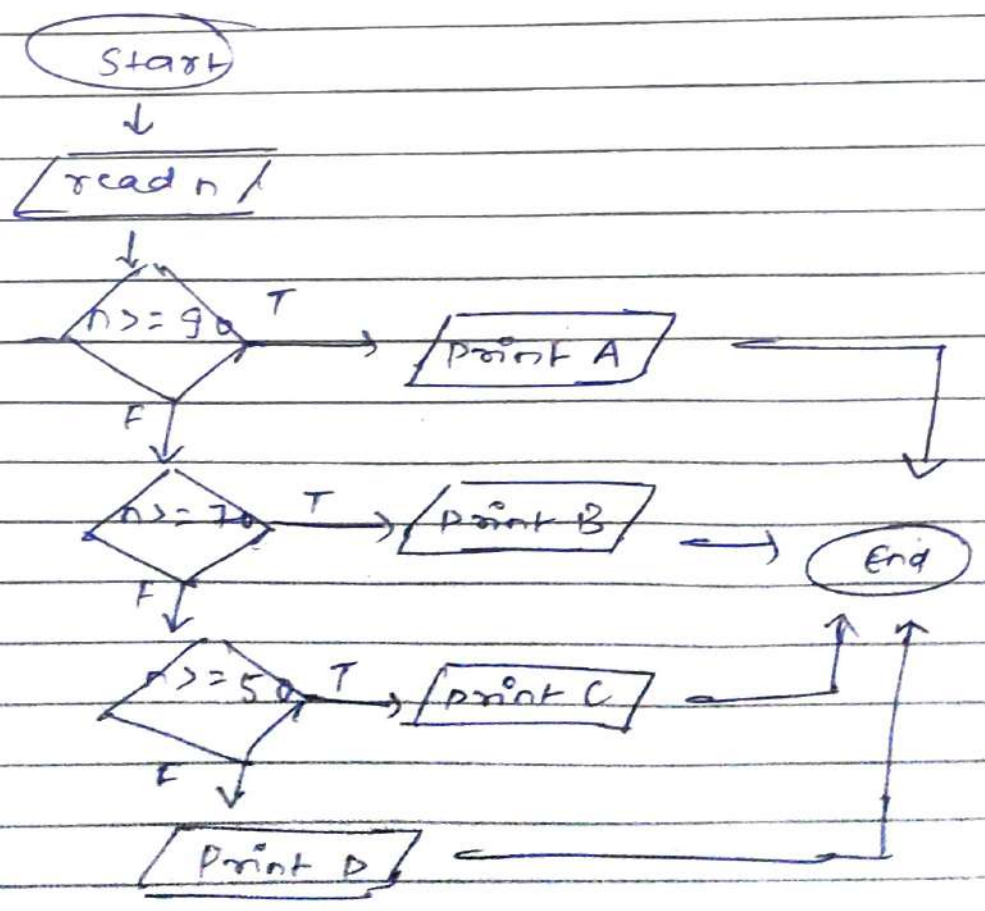 Start
read n
n>=90
T
print A
F
n>=70
T
print B
End
F
n>=50
T
print C
F
Print D